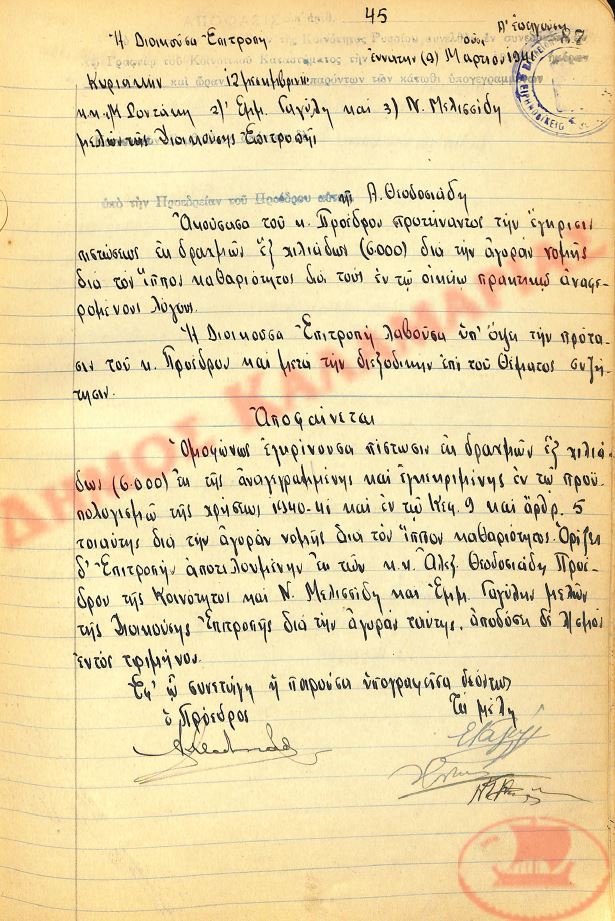 45
Α' ἐπειγούση
87
Ἡ Διοικοῦσα Ἐπιτροπὴ
τῆς Κοινότητος Ρυσίου συνελθοῦσα ἐν συνεδριάσει
ἐν τῷ Γραφείῳ τοῦ Κοινοτικοῦ Καταστήματος τὴν ἐννάτην (9) Μαρτίου 1941 ἡμέραν
Κυριακὴν καὶ ὥραν 12 μεσημβρινὴν παρόντων τῶν κάτωθι ὑπογεγραμμένων
κ.κ. Μ Ζοντάκη 2) Ἐμμ. Γαγύλη καὶ 3) Ν. Μελισσίδη
μελῶν τῆς Διοικούσης Ἐπιτροπῆς,
ὑπὸ τὴν Προεδρείαν τοῦ Προέδρου αὐτῆς Α. Θεοδοσιάδη
Ἀκούσασα τοῦ κ. Προέδρου προτείναντος τὴν ἔγκρισιν
πιστώσεως ἐκ δραχμῶν ἓξ χιλιάδων (6.000) διὰ τὴν ἀγορὰν νομῆς
διὰ τὸν ἵππον καθαριότητος διὰ τοὺς ἐν τῷ οἰκείῳ πρακτικῷ ἀναφε-
ρομένους λόγους.
Ἡ Διοικοῦσα Ἐπιτροπὴ λαβοῦσα ὑπ' ὄψει τὴν πρότα-
σιν τοῦ κ. Προέδρου καὶ μετὰ τὴν διεξοδικὴν ἐπὶ τοῦ θέματος συζή-
τησιν.
Ἀποφαίνεται
Ὁμοφώνως ἐγκρίνουσα πίστωσιν ἐκ δραχμῶν ἓξ χιλιά-
δων (6.000) ἐκ τῆς ἀναγεγραμμένης καὶ ἐγκεκριμένης ἐν τῷ προϋ-
πολογισμῷ τῆς χρήσεως 1940-41 καὶ ἐν τῷ Κεφ. 9 καὶ ἄρθρ. 5
τοιαύτης διὰ τὴν ἀγορὰν νομῆς διὰ τὸν ἵππον καθαριότητος. Ὁρίζει
δ' Ἐπιτροπὴν ἀποτελουμένην ἐκ τῶν κ.κ. Ἀλεξ. Θεοδοσιάδη Προέ-
δρου τῆς Κοινότητος καὶ Ν. Μελισσίδη καὶ Ἐμμ. Γαγύλη μελῶν
τῆς Διοικούσης Ἐπιτροπῆς διὰ τὴν ἀγορὰν ταύτης, ἀποδόσῃ δὲ λ)σμὸν
ἐντὸς τριμήνου.
Ἐφ' ᾧ συνετάγη ἡ παροῦσα ὑπογραφεῖσα δεόντως
ὁ Πρόεδρος
Τὰ μέλη
ΔΗΜΟΣ ΚΑΛΑΜΑΡΙΑΣ